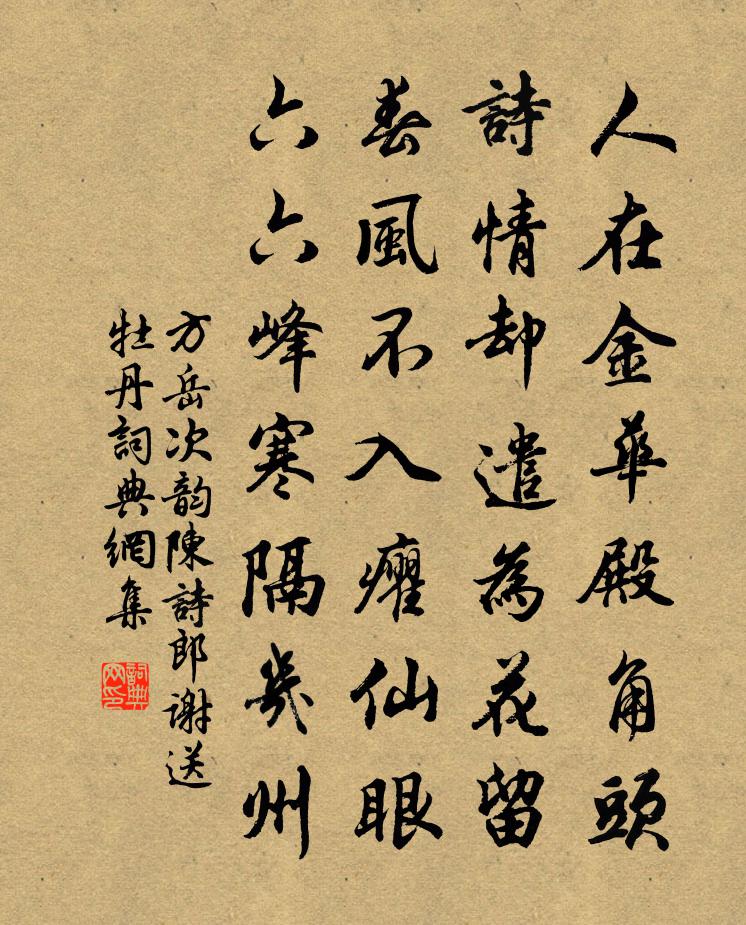 人在金華殿角頭
詩情却遣為花留
春風不入癯仙眼
六六峰寒隔幾州
方岳次韵陳詩郎謝送
牡丹詞典網集
詞典
网印